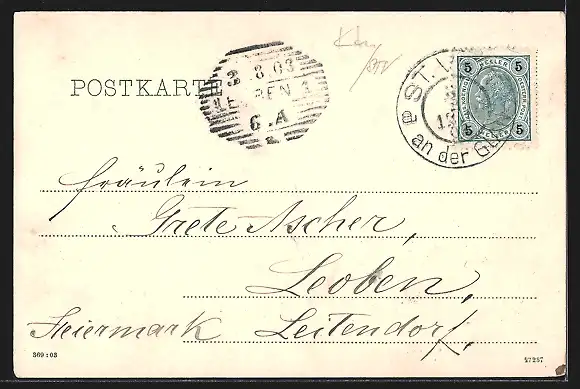 POSTKARTE
3 8 03
LEOBEN 1
6.A
ST. V
an der G
5 HELLER 5
5 HELLER 5
Fräulein
Grete Ascher,
Leoben,
Steiermark Leitendorf.
369 : 03
57297